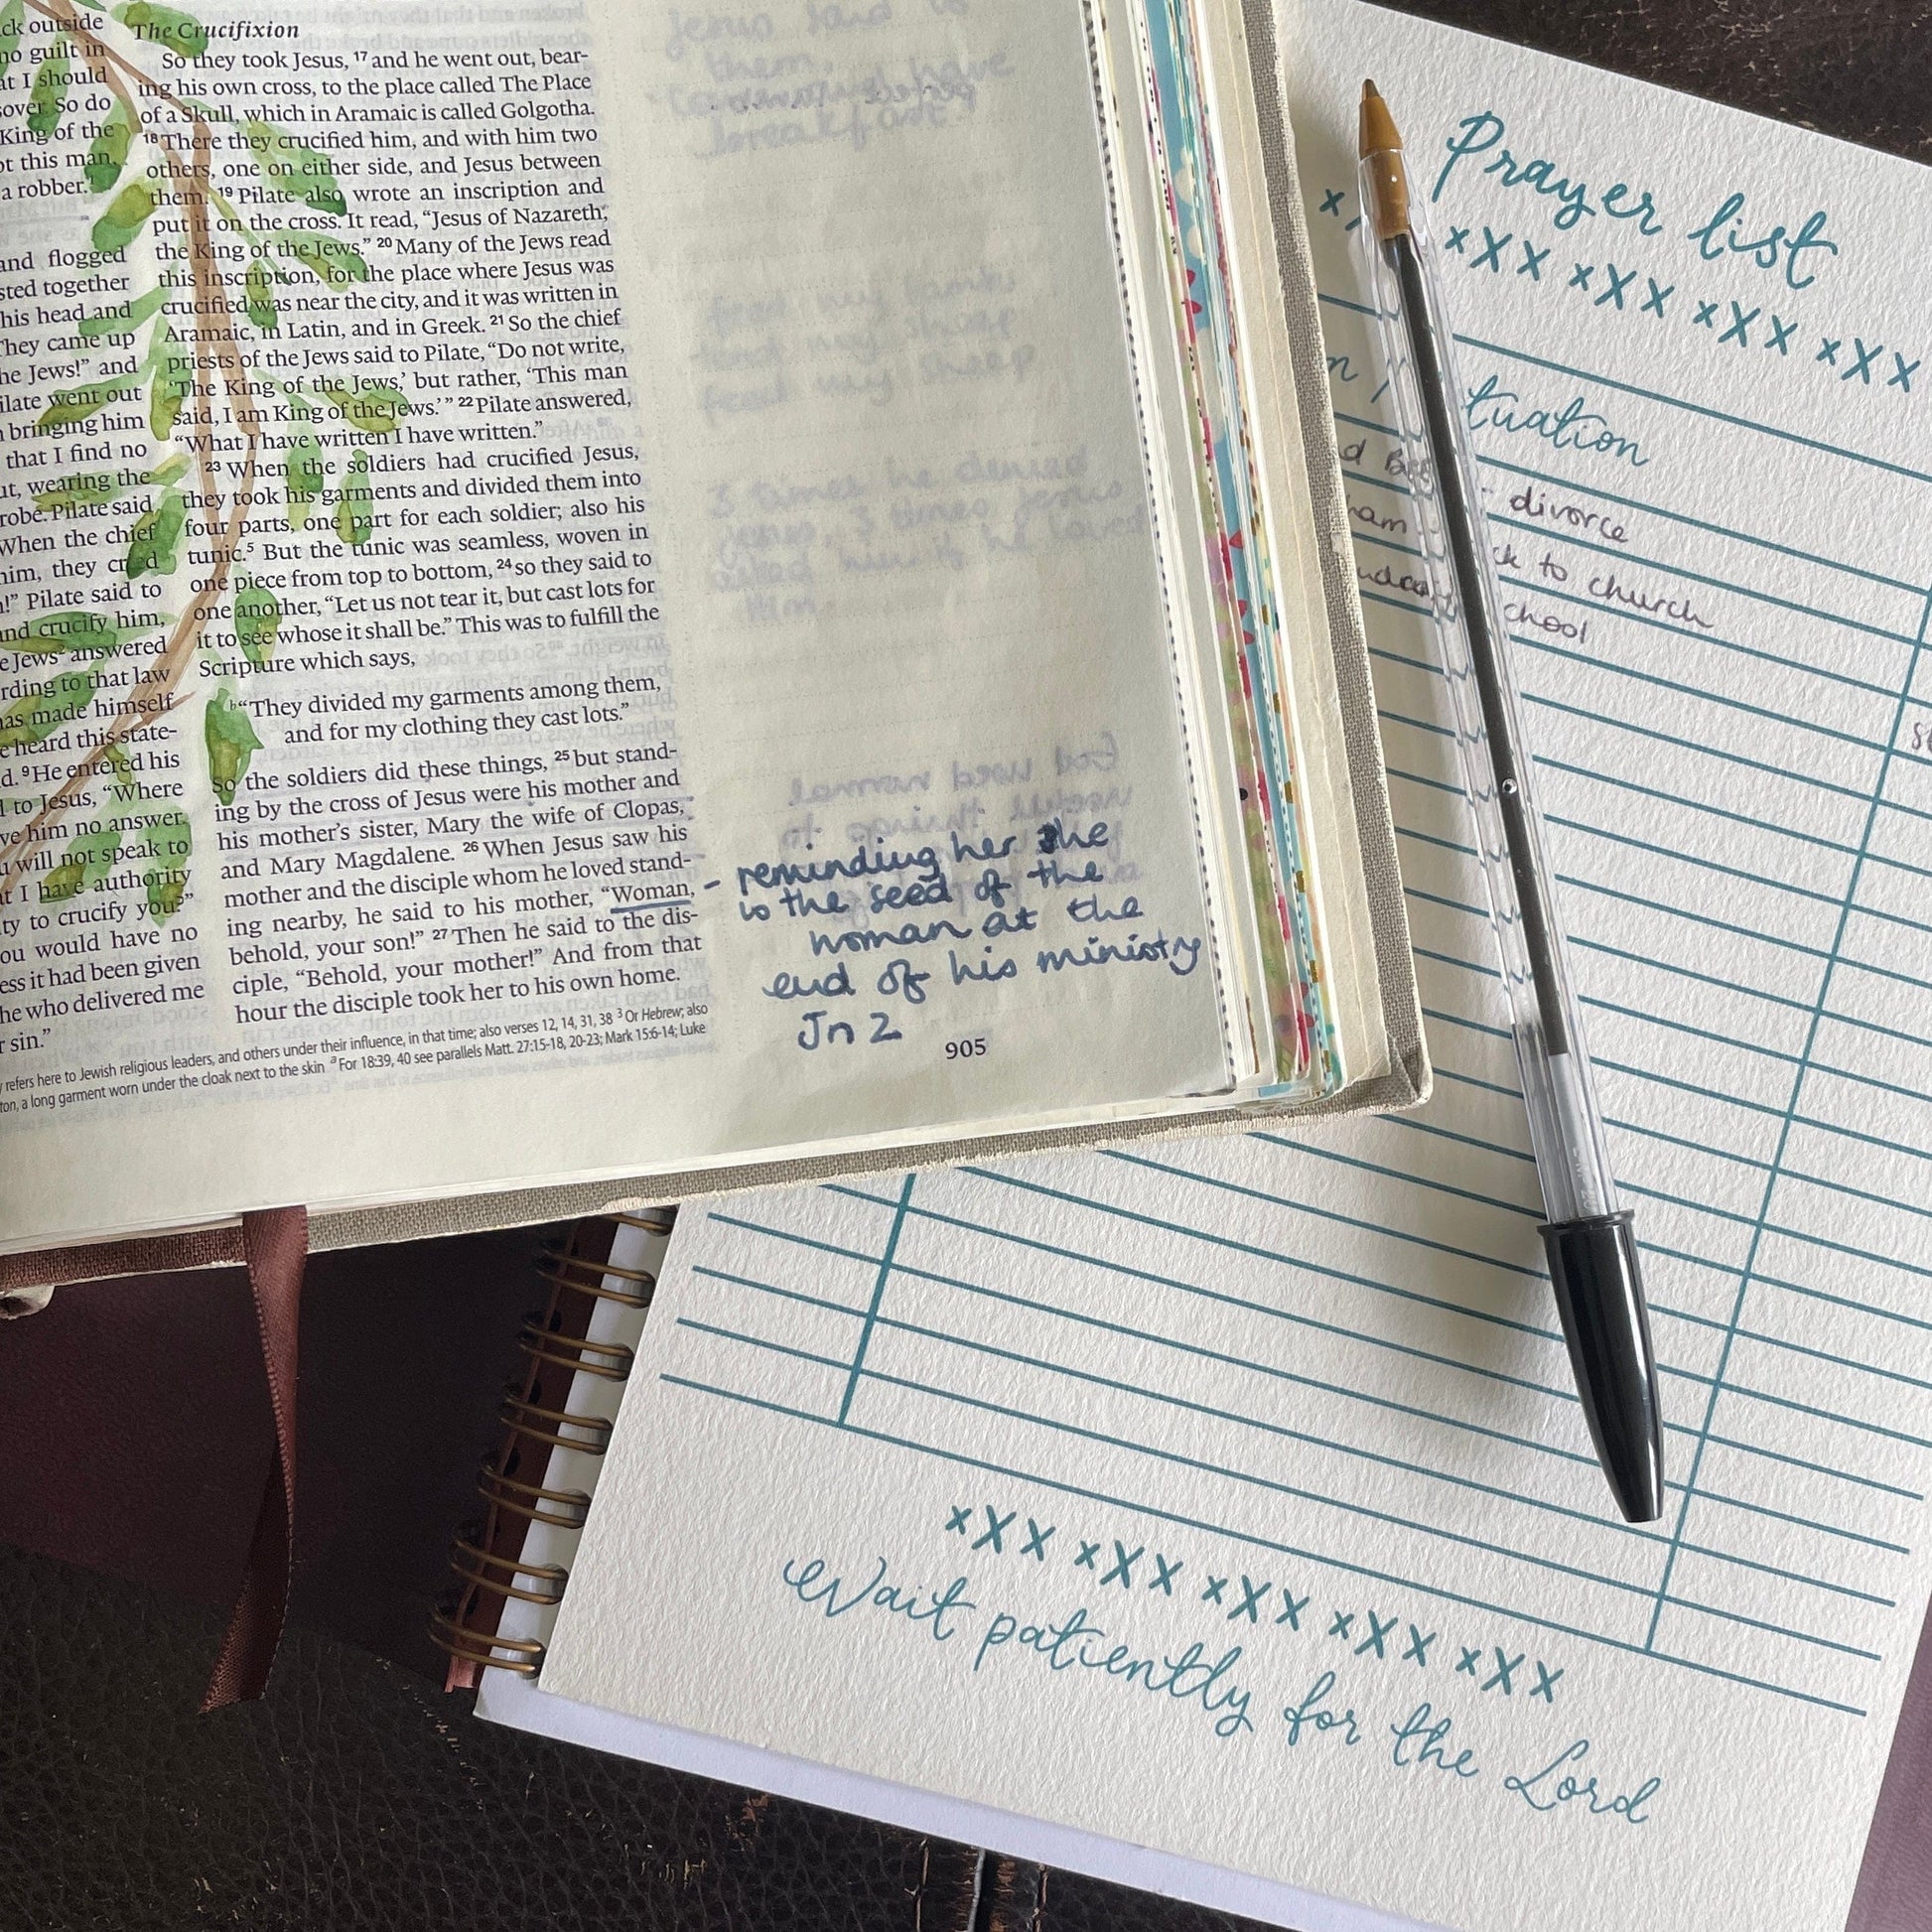 ck outside
no guilt in
at I should
sover. So do
King of the
ot this man,
a robber.
and flogged
sted together
his head and
They came up
he Jews!” and
ilate went out
bringing him
that I find no
ut, wearing the
robe. Pilate said
When the chief
him, they cried
!” Pilate said to
and crucify him,
e Jews² answered
rding to that law
has made himself
e heard this state-
d. ⁹He entered his
to Jesus, “Where
ve him no answer.
u will not speak to
t I have authority
ty to crucify you?”
ou would have no
ess it had been given
he who delivered me
r sin.”
The Crucifixion
So they took Jesus, ¹⁷ and he went out, bear-
ing his own cross, to the place called The Place
of a Skull, which in Aramaic is called Golgotha.
¹⁸ There they crucified him, and with him two
others, one on either side, and Jesus between
them. ¹⁹ Pilate also wrote an inscription and
put it on the cross. It read, “Jesus of Nazareth,
the King of the Jews.” ²⁰ Many of the Jews read
this inscription, for the place where Jesus was
crucified was near the city, and it was written in
Aramaic, in Latin, and in Greek. ²¹ So the chief
priests of the Jews said to Pilate, “Do not write,
‘The King of the Jews,’ but rather, ‘This man
said, I am King of the Jews.’” ²² Pilate answered,
“What I have written I have written.”
²³ When the soldiers had crucified Jesus,
they took his garments and divided them into
four parts, one part for each soldier; also his
tunic.⁵ But the tunic was seamless, woven in
one piece from top to bottom, ²⁴ so they said to
one another, “Let us not tear it, but cast lots for
it to see whose it shall be.” This was to fulfill the
Scripture which says,
ᵇ“They divided my garments among them,
and for my clothing they cast lots.”
So the soldiers did these things, ²⁵ but stand-
ing by the cross of Jesus were his mother and
his mother’s sister, Mary the wife of Clopas,
and Mary Magdalene. ²⁶ When Jesus saw his
mother and the disciple whom he loved stand-
ing nearby, he said to his mother, “Woman,
behold, your son!” ²⁷ Then he said to the dis-
ciple, “Behold, your mother!” And from that
hour the disciple took her to his own home.
refers here to Jewish religious leaders, and others under their influence, in that time; also verses 12, 14, 31, 38 ³ Or Hebrew; also
ton, a long garment worn under the cloak next to the skin ᵃ For 18:39, 40 see parallels Matt. 27:15-18, 20-23; Mark 15:6-14; Luke
- reminding her she
is the seed of the
woman at the
end of his ministry
Jn 2
905
feed my lambs
tend my sheep
feed my sheep
3 times he denied
Jesus, 3 times Jesus
asked him if he loved
him
Prayer list
xXX xXX xXX xXX
tuation
divorce
ck to church
chool
xXX xXX xXX xXX xXX
Wait patiently for the Lord